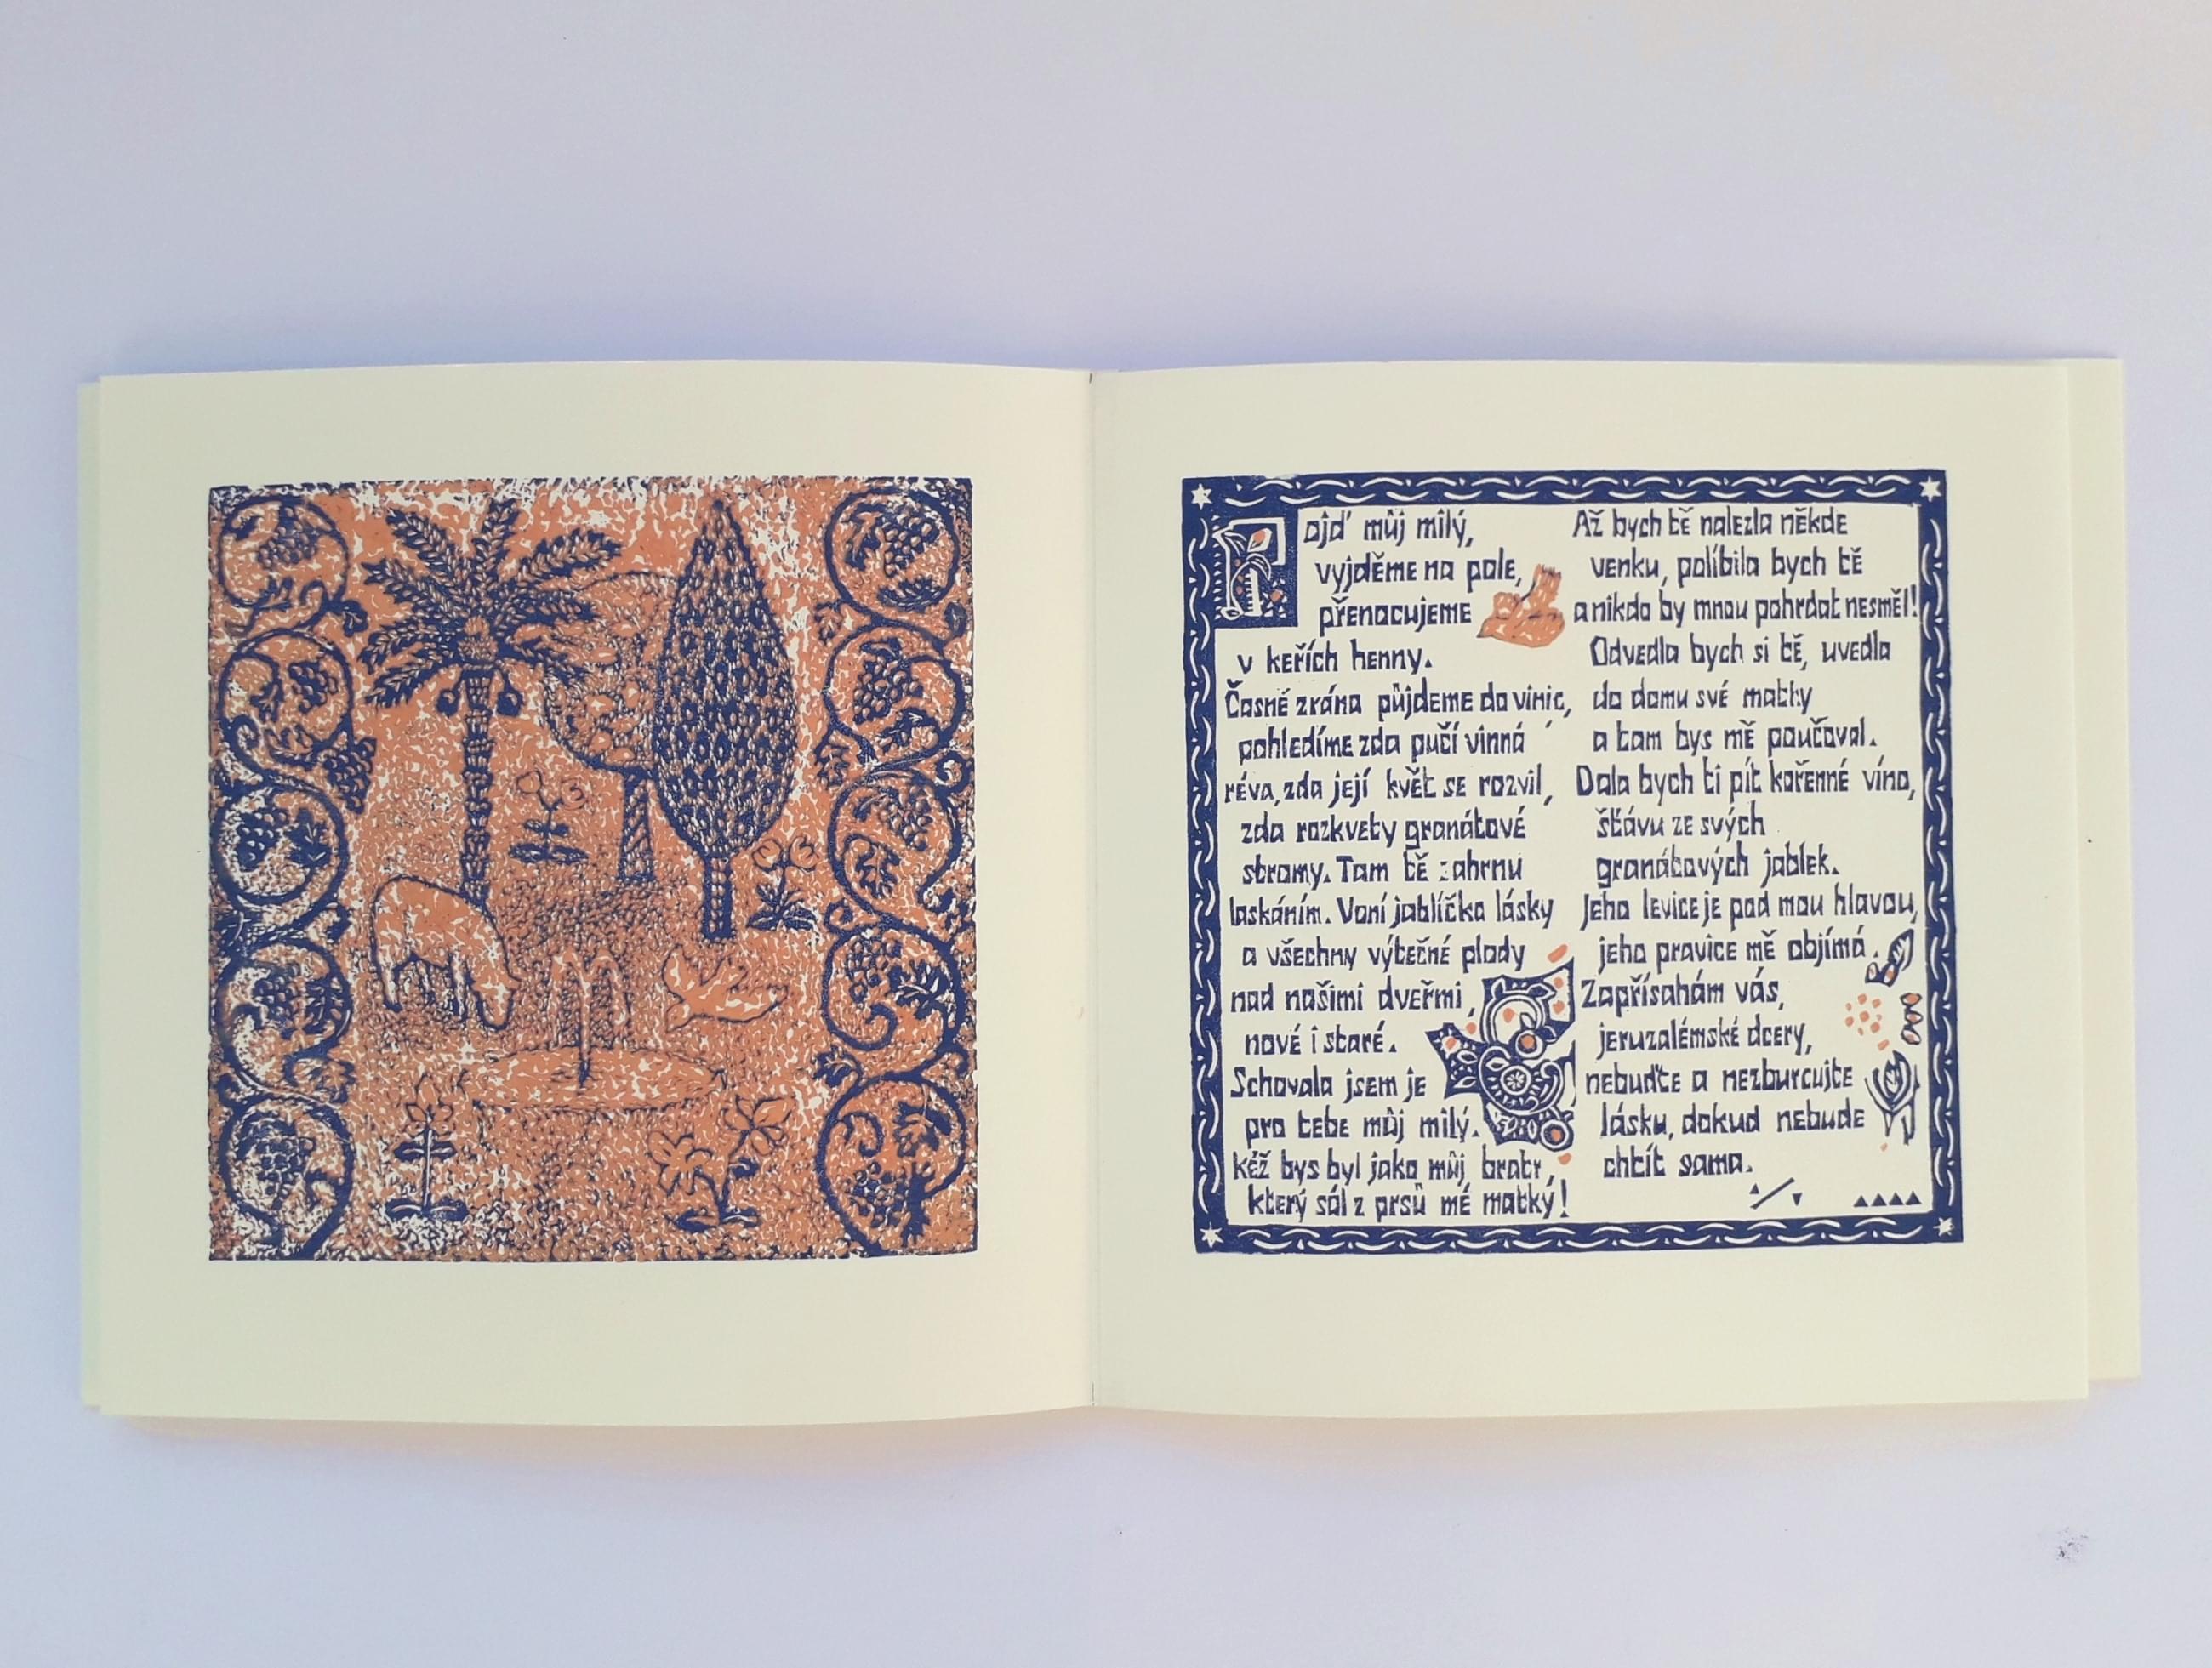 Pojď můj milý,
vyjděme na pole,
přenocujeme
v keřích henny.
Časně zrána půjdeme do vinic,
pohledíme zda pučí vinná
réva, zda její květ se rozvil,
zda rozkvetly granátové
stromy. Tam tě zahrnu
laskáním. Voní jablíčka lásky
a všechny výtečné plody
nad našimi dveřmi,
nové i staré.
Schovala jsem je
pro tebe můj milý.
Kéž bys byl jako můj bratr,
který sál z prsů mé matky!
Až bych tě nalezla někde
venku, políbila bych tě
a nikdo by mnou pohrdat nesměl!
Odvedla bych si tě, uvedla
do domu své matky
a tam bys mě poučoval.
Dala bych ti pít kořenné víno,
šťávu ze svých
granátových jablek.
Jeho levice je pod mou hlavou,
jeho pravice mě objímá.
Zapřísahám vás,
jeruzalémské dcery,
nebuďte a nezburcujte
lásku, dokud nebude
chtít sama.